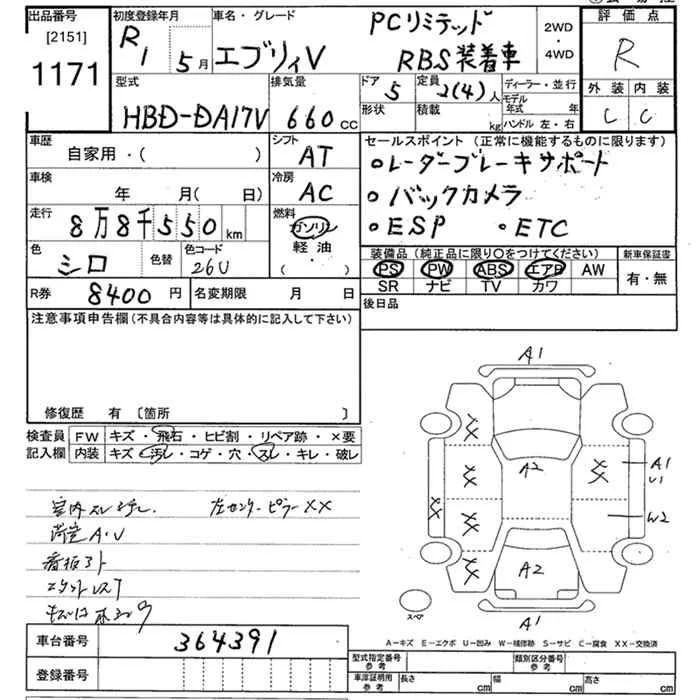 出品番号 初度登録年月 車名・グレード PCリミテッド 2WD 評価点
[2151] R1 5月 エブリイV RBS装着車 ・4WD R
1171 型式 排気量 ドア 定員 ディーラー・並行 外装 内装
HBD-DA17V 660cc 5 2(4)人 モデル年式 年 C C
形状 積載 kg ハンドル 左・右
車歴 シフト セールスポイント(正常に機能するものに限ります)
自家用・( ) AT ・レーダーブレーキサポート
車検 冷房 ・バックカメラ
年 月(日) AC ・ESP ・ETC
走行 燃料
8万8千550km ガソリン
軽油
( )
色 色替 色コード 装備品(純正品に限り○をつけてください) 新車保証書
シロ 26U PS PW ABS エアB AW 有・無
SR ナビ TV カワ
R券 8400円 名変期限 月 日 後日品
注意事項申告欄(不具合内容等は具体的に記入して下さい)
修復歴 有 [箇所 ]
検査員 FW キズ・飛石・ヒビ割・リペア跡・×要
記入欄 内装 キズ・汚レ・コゲ・穴・スレ・キレ・破レ
左センターピラーXX
荷室A・U
A1
A2
A1
U1
W2
A2
A1
スペア
A-キズ E-エクボ U-凹み W-補修跡 S-サビ C-腐食 XX-交換済
車台番号 364391
型式指定番号 参考 類別区分番号 参考
登録番号 車庫証明用 参考 長さ cm 幅 cm 高さ cm